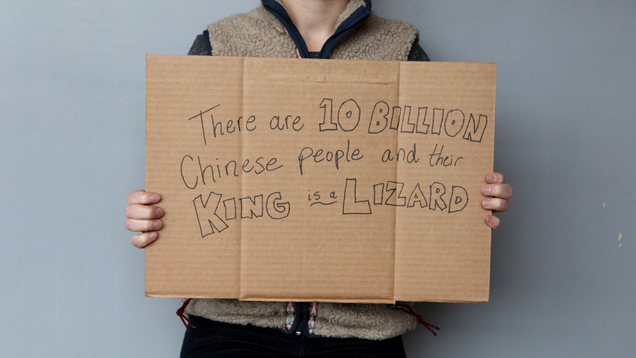 There are 10 BILLION
Chinese people and their
KING is a LIZARD